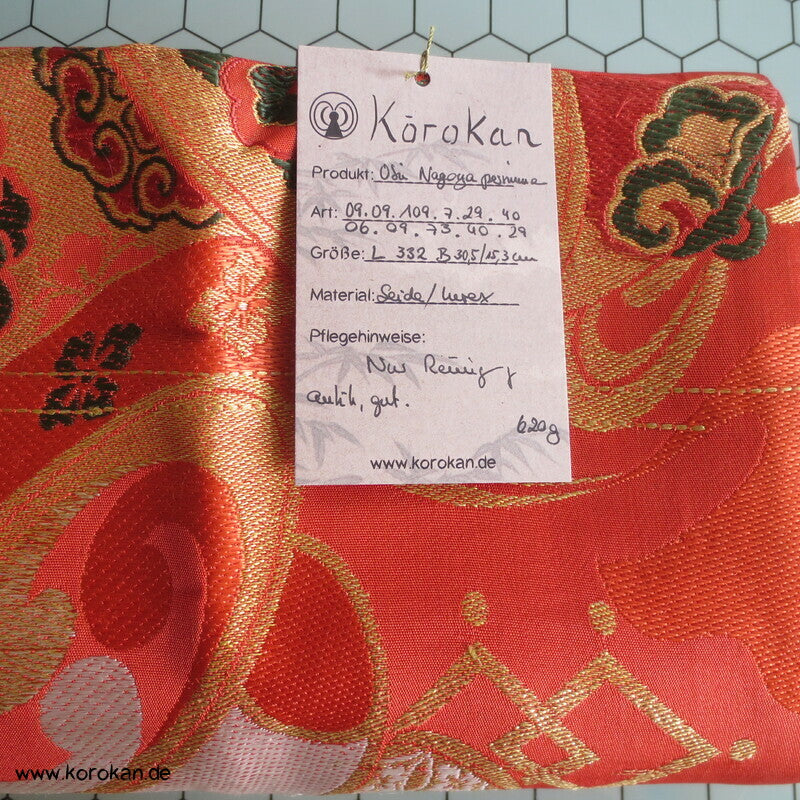 KōroKan
Produkt: Obi Nagoya
Art: 09.09.109.7.29.40
06.09.73.40.29
Größe: L 332 B 30,5/15,3cm
Material: Seide/Lurex
Pflegehinweise:
Nur Reinig
antik, gut.
620g
www.korokan.de
www.korokan.de